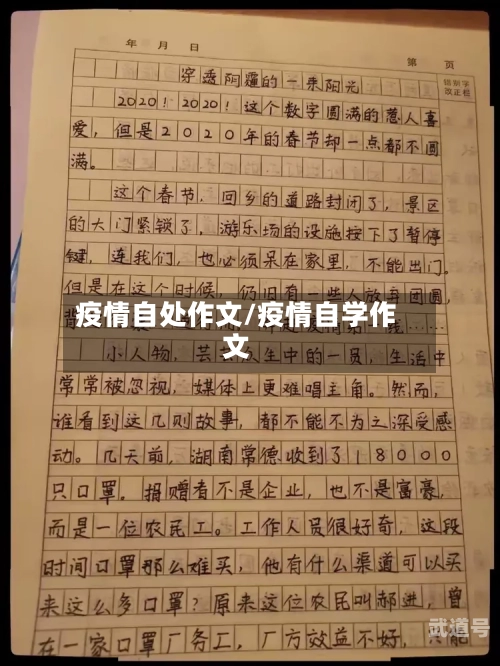 年 月 日
第 页
错别字
改正栏
穿透阴霾的一束阳光
2020！2020！这个数字圆满的惹人喜
爱，但是2020年的春节却一点都不圆
满。
这个春节，回乡的道路封闭了，景区
的大门紧锁了，游乐场的设施按下了暂停
键，连我们，也必须呆在家里，不能出门。
但是在这个时候，仍旧有一些人放弃团圆，
疫情自处作文/疫情自学作
文
小人物，芸芸众生中的一员，生活中
常常被忽视，媒体上更难唱主角。然而，
谁看到这几则故事，都不能不为之深受感
动。几天前，湖南常德收到了18000
只口罩。捐赠者不是企业，也不是富豪，
而是一位农民工。工作人员很好奇，这段
时间口罩那么难买，他有什么渠道可以买
来这么多口罩？原来这位农民叫郝进，曾
在一家口罩厂务工，厂方效益不好，只能
武道号